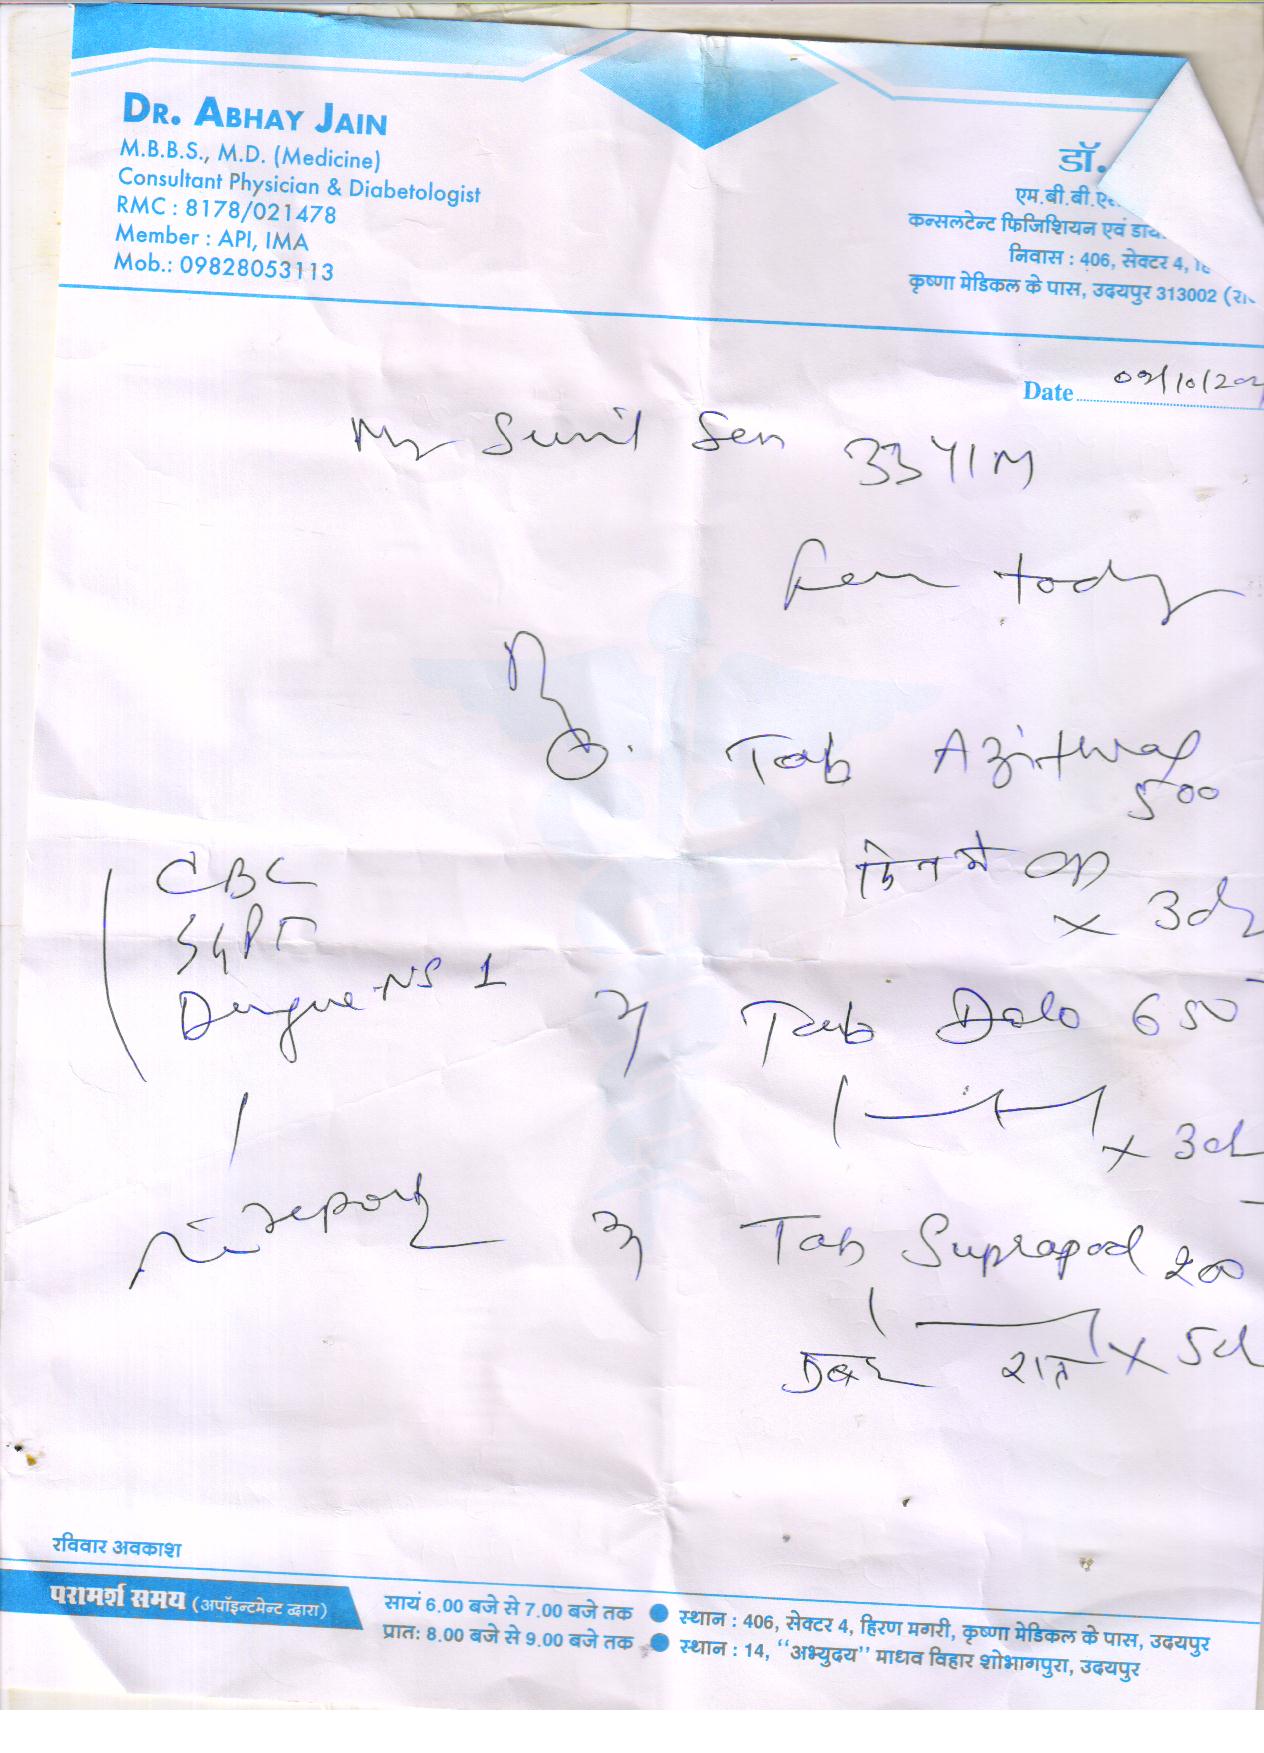 DR. ABHAY JAIN
M.B.B.S., M.D. (Medicine)
Consultant Physician & Diabetologist
RMC : 8178/021478
Member : API, IMA
Mob.: 09828053113
डॉ.
एम.बी.बी.एस
कन्सलटेन्ट फिजिशियन एवं डाय
निवास : 406, सेक्टर 4, हि
कृष्णा मेडिकल के पास, उदयपुर 313002 (रा
Date
Mr Sunil Sen 33Y/M
Tab
500
दिन में
x 3d
CBC
SGPT
Dengue NS 1
Tab Dolo 650
x 3d
report
Tab Suprapod 200
रात x 5d
रविवार अवकाश
परामर्श समय (अपॉइन्टमेन्ट द्वारा)
सायं 6.00 बजे से 7.00 बजे तक ● स्थान : 406, सेक्टर 4, हिरण मगरी, कृष्णा मेडिकल के पास, उदयपुर
प्रातः 8.00 बजे से 9.00 बजे तक ● स्थान : 14, ‘‘अभ्युदय’’ माधव विहार शोभागपुरा, उदयपुर